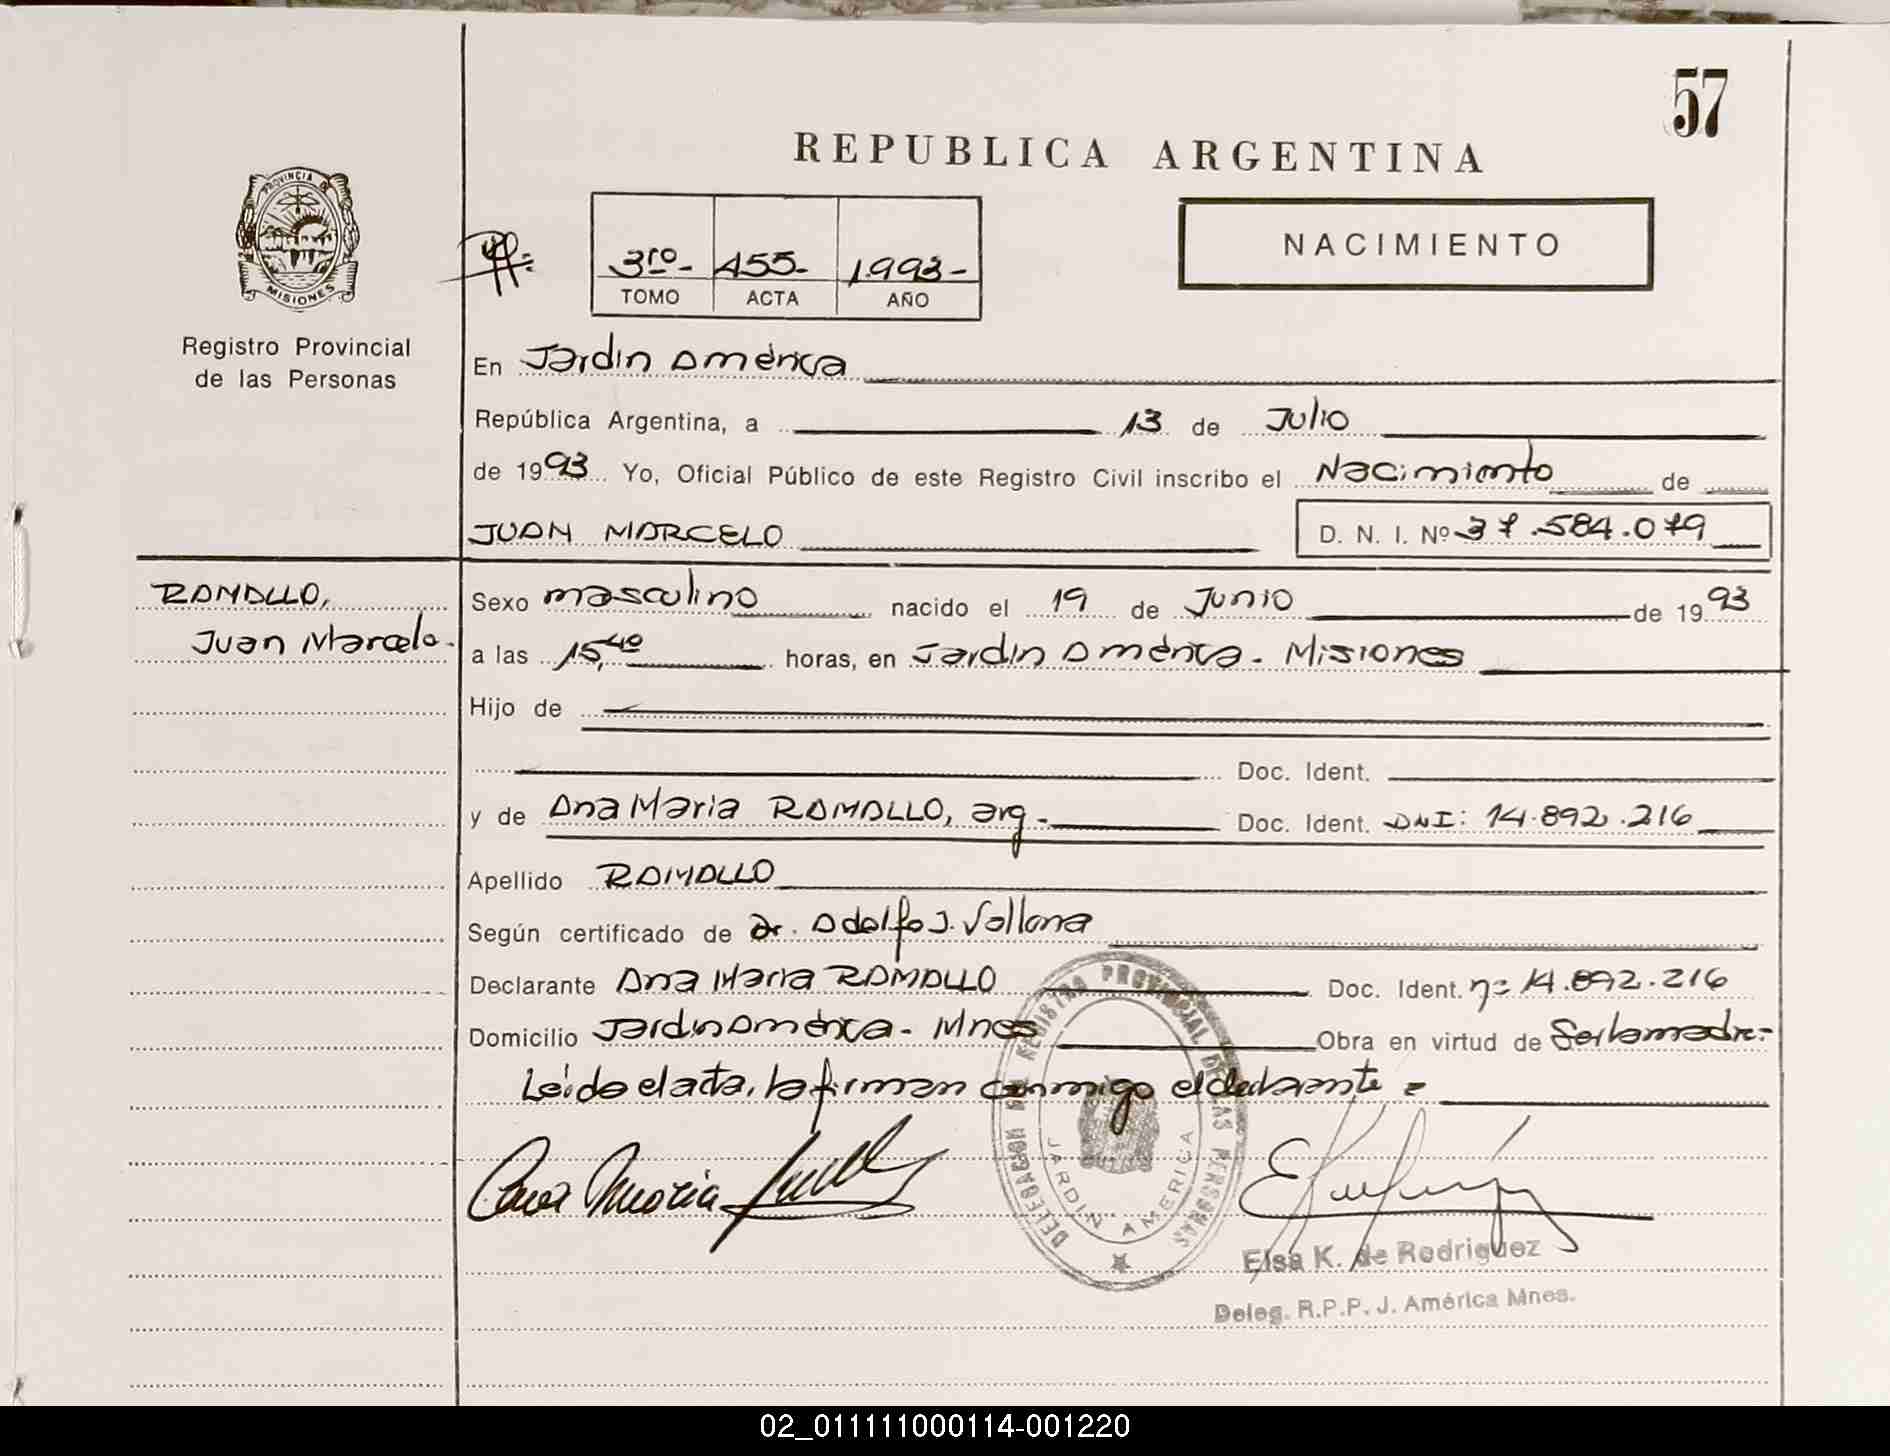 57
REPUBLICA ARGENTINA
PROVINCIA DE
MISIONES
Registro Provincial
de las Personas
3ro- 455- 1.993-
TOMO ACTA AÑO
NACIMIENTO
En Jardín América
República Argentina, a 13 de Julio
de 1993 Yo, Oficial Público de este Registro Civil inscribo el Nacimiento de
JUAN MARCELO D. N. I. Nº 37.584.079
RAMALLO,
Juan Marcelo-
Sexo masculino nacido el 19 de Junio de 1993
a las 15,40 horas, en Jardín América - Misiones
Hijo de
Doc. Ident.
y de Ana Maria RAMALLO, arg - Doc. Ident. DNI: 14.892.216
Apellido RAMALLO
Según certificado de Dr. Adolfo J. Vallona
Declarante Ana Maria RAMALLO Doc. Ident. nº 14.892.216
Domicilio Jardín América - Mnes Obra en virtud de Ser la madre-
Leída el acta, la firman conmigo el declarante =
Ana Maria
DELEGACION DEL REGISTRO PROVINCIAL DE LAS PERSONAS
JARDIN AMERICA
Elsa K. de Rodriguez
Deleg. R.P.P. J. América Mnes.
02_011111000114-001220